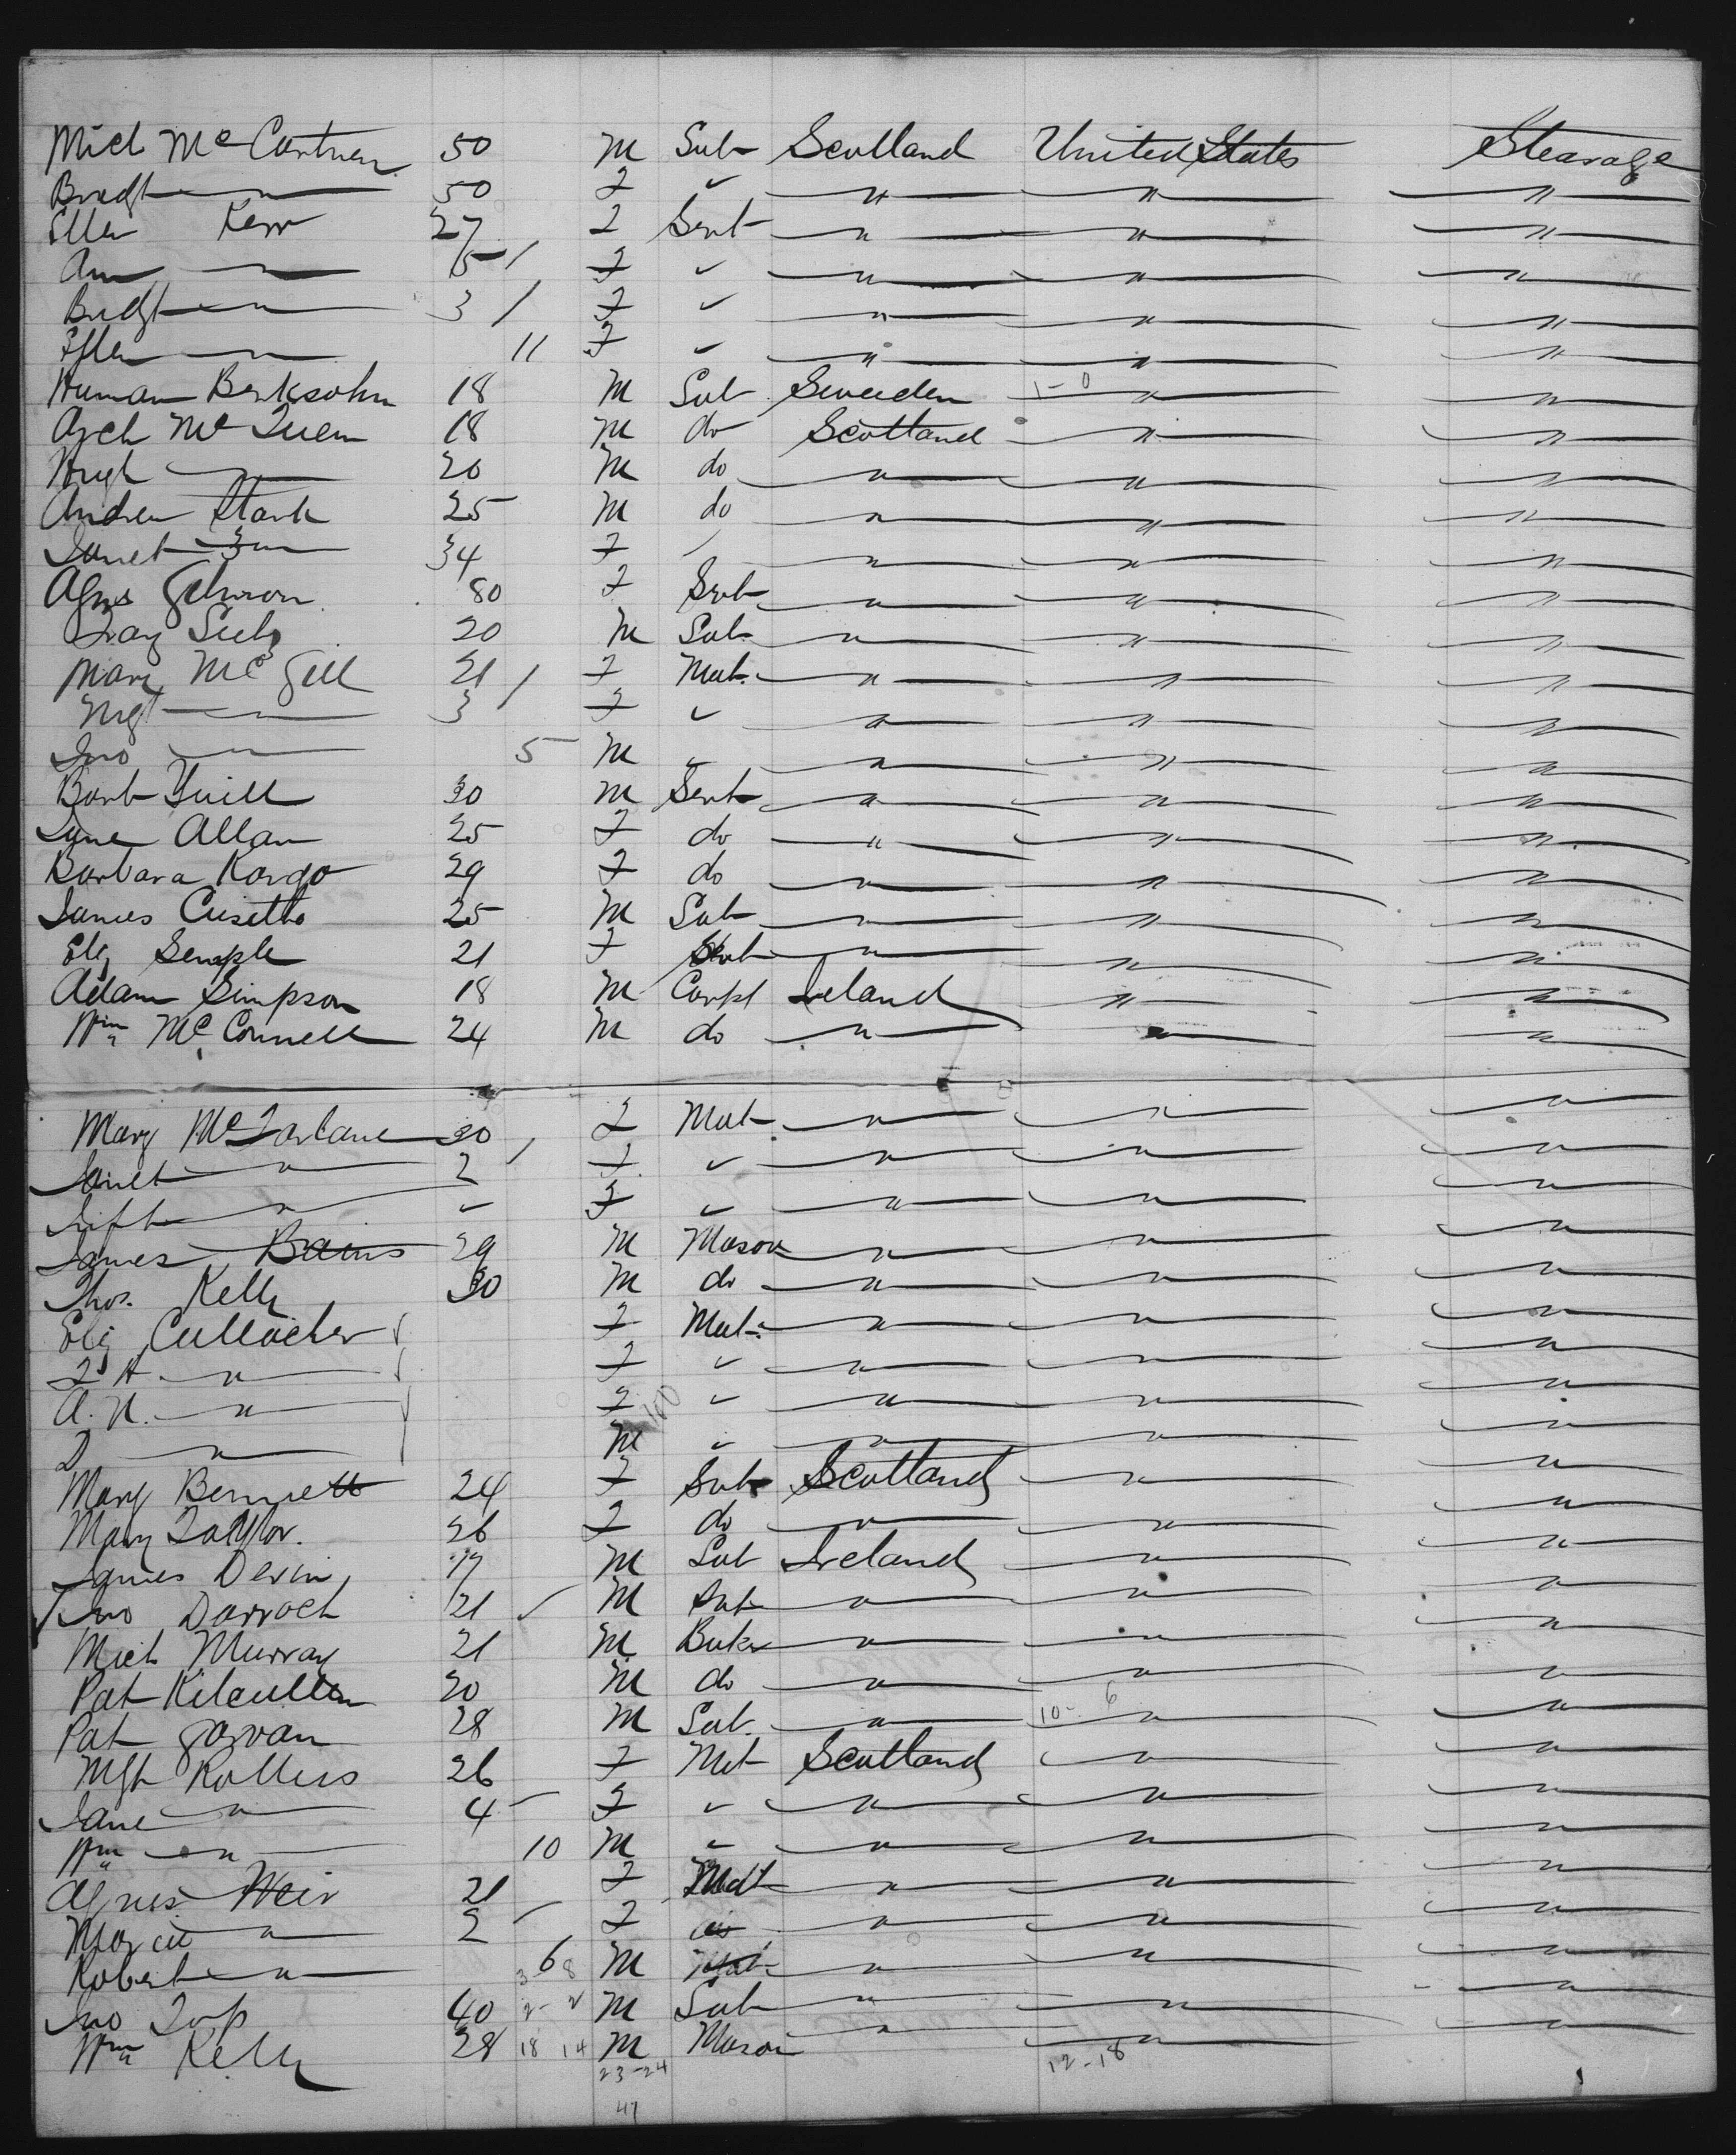 Mich McCartney 50 M Lab Scotland United States Stearage
Bridgt " 50 F " " " "
Ellen Kerr 27 Servt " " "
Ann " 5 / F " " " "
Bridgt " 3 / F " " " "
Ellen " 11 F " " " "
Human Berksohn 18 M Lab Sweeden 1-0 " "
Arch McQueen 18 M do Scotland " "
Hugh " 20 M do " " "
Andrew Stark 25 M do " " "
Janet " 34 F " " " "
Agns 80 F Servt " " "
20 M Lab " " "
Mary McGill 21 / F Mat. " " "
Mgt " 3 / F " " " "
Jno " 5 M " " " "
Barb Yuill 30 M Servt " " "
Jane Allan 25 F do " " "
Barbara Kargo 29 F do " " "
James 25 M Lab " " "
Eliz Semple 21 F Servt " " "
Adam Simpson 18 M Carpt Ireland " "
Wm McConnell 24 M do " " "
Mary McFarlane 30 / F Mat " " "
Janet " 2 F " " " "
Inft " " F " " " "
James Bains 29 M Mason " " "
Thos. Kelly 30 M do " " "
Eliz F Mat. " " "
" F " " " "
A. N. " F " " " "
D " M " " " "
Mary Bennett 24 F Servt Scotland " "
Mary Taylor. 26 F do " " "
James Devin 19 M Lab Ireland " "
Jno Darroch 21 M " " "
Mich Murray 21 M Baker " " "
Pat Kilcullen 20 M do " " "
Pat Garvan 28 M Lab. " 10-6 " "
Mgt Rollins 26 F Mat Scotland " "
Jane " 4 F " " " "
Wm " 10 M " " " "
Agnes Weir 21 F Mat " " "
" 2 F " " "
Robert " 6 M " " "
Jno 40 2-2 M Lab " " "
Wm Kelly 28 18 14 M Mason " " "
23-24 12-18
47